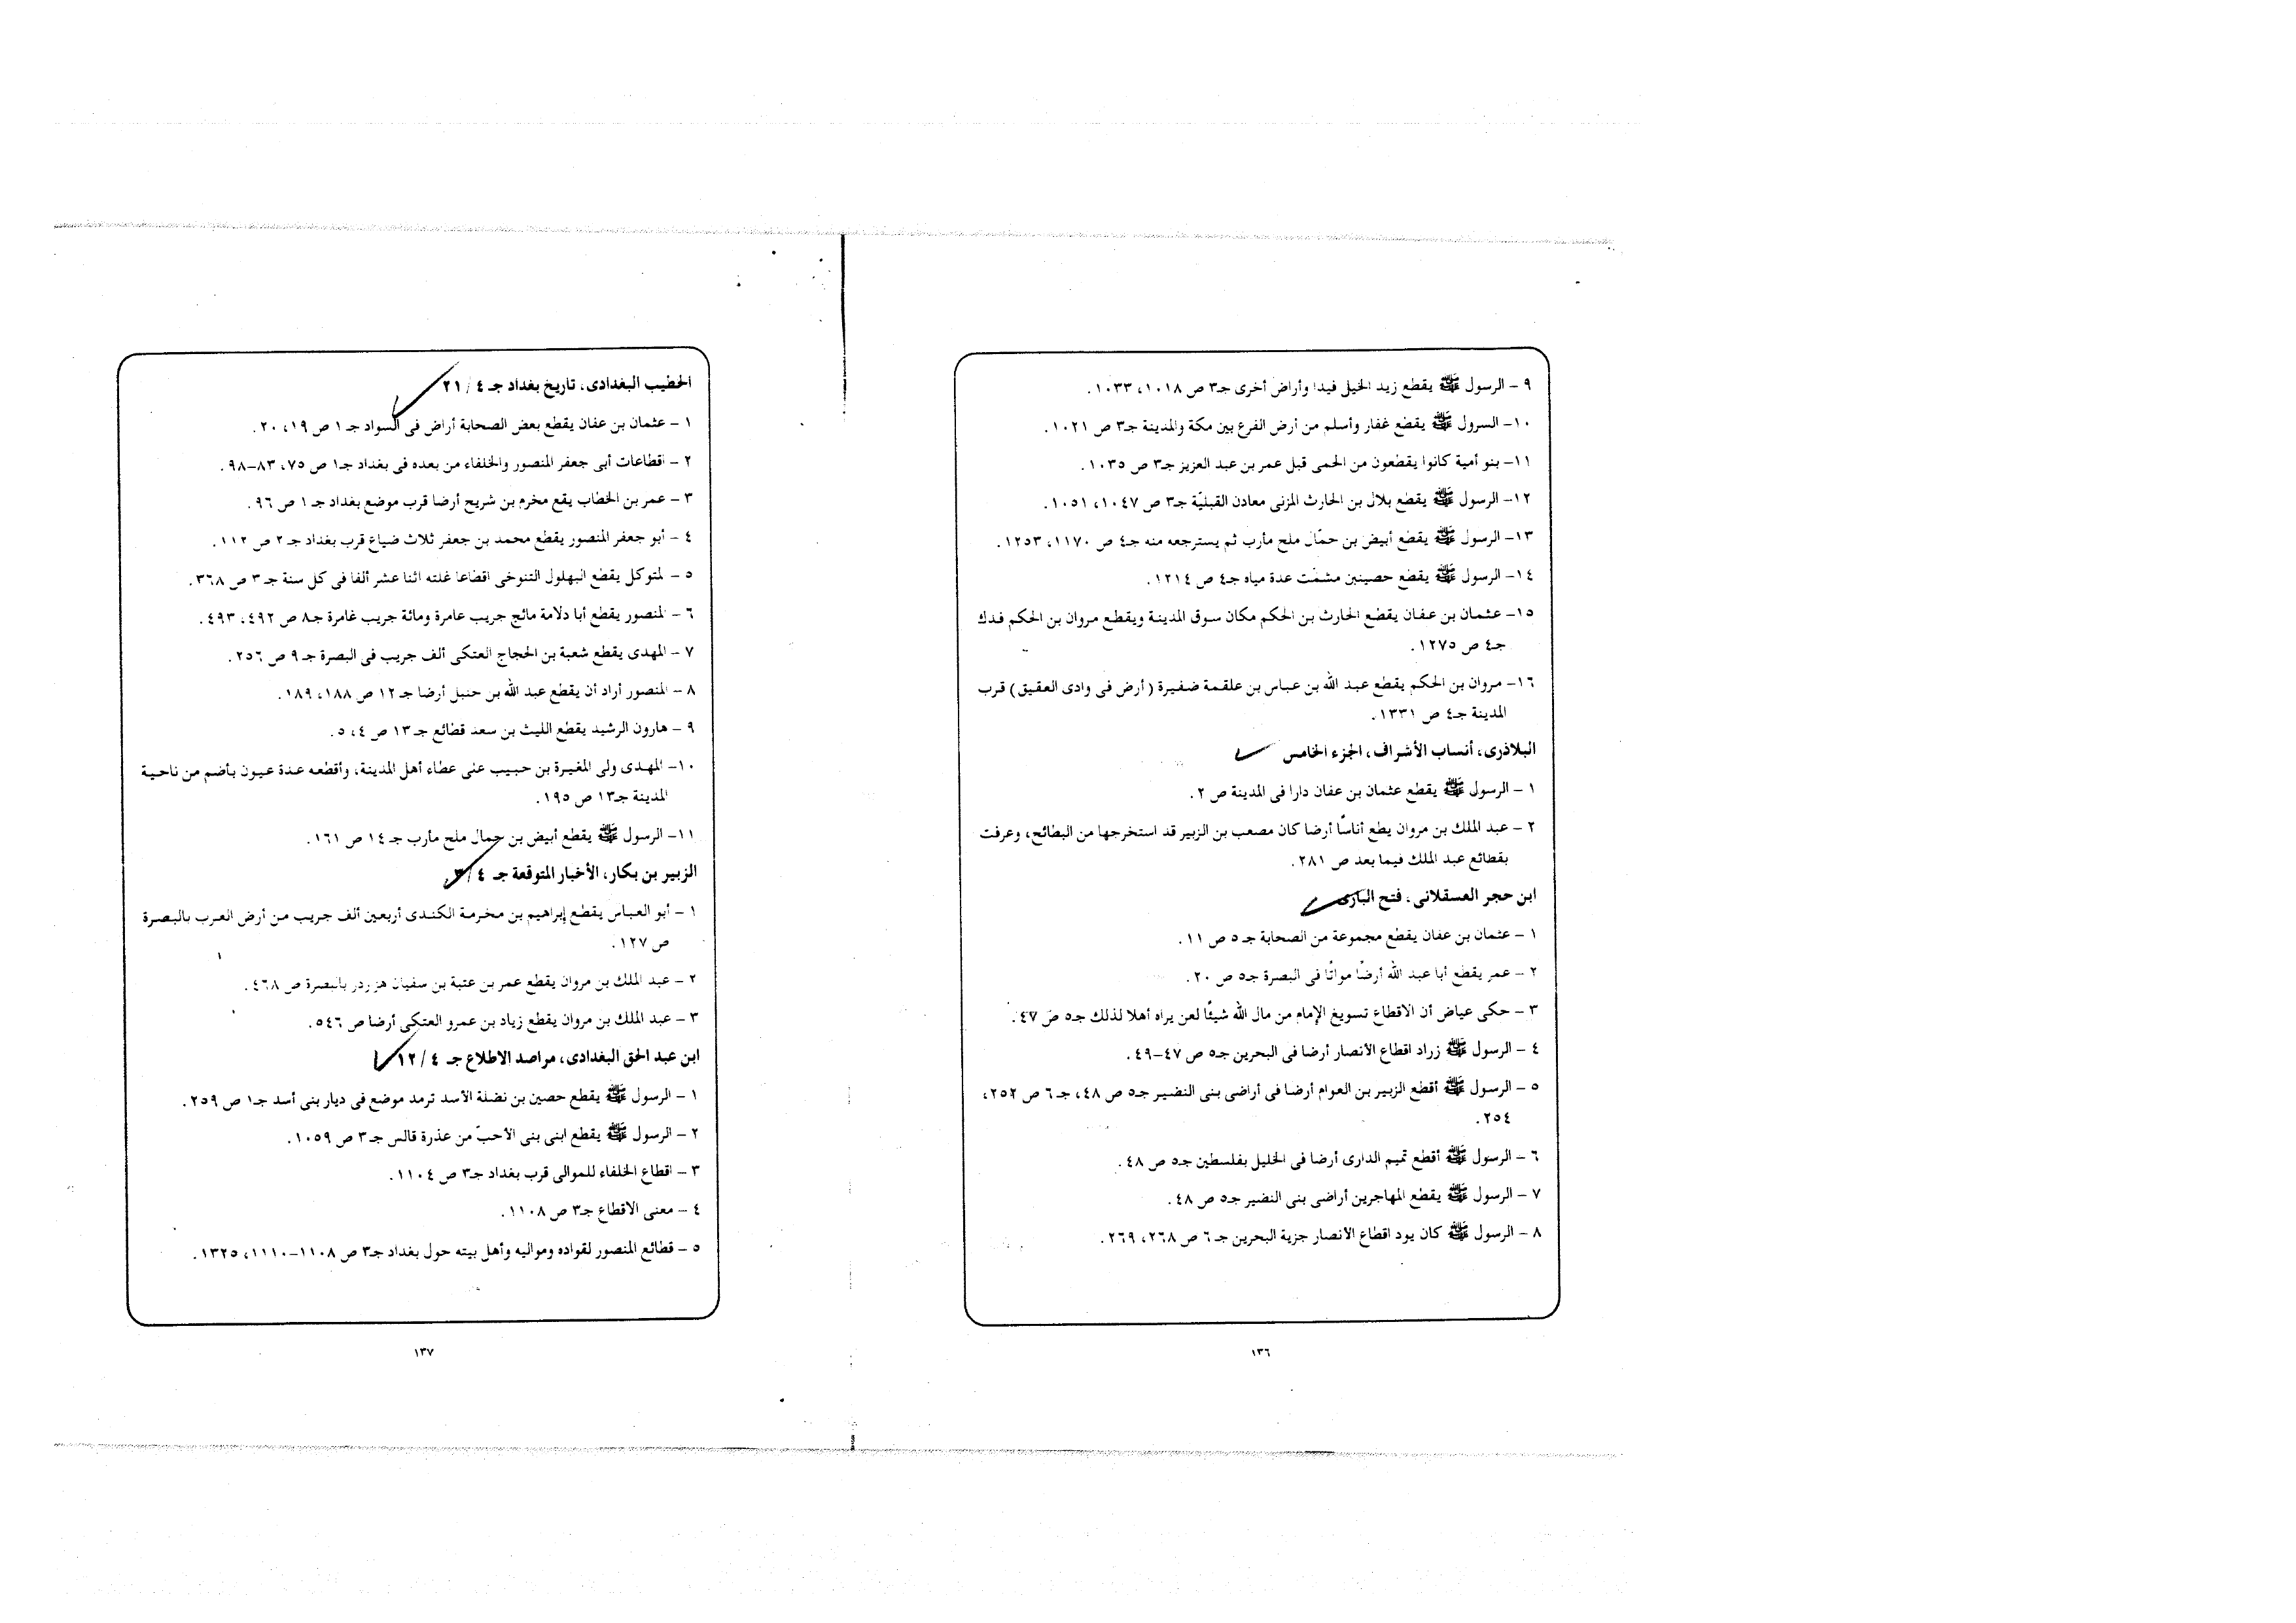 ٩ – الرسول ﷺ يقطع زيد الخيل فيدا وأراض أخرى جـ٣ ص ١٠١٨، ١٠٣٣.
١٠– السرول ﷺ يقطع غفار وأسلم من أرض الفرع بين مكة والمدينة جـ٣ ص ١٠٢١.
١١– بنو أمية كانوا يقطعون من الحمى قبل عمر بن عبد العزيز جـ٣ ص ١٠٣٥.
١٢– الرسول ﷺ يقطع بلال بن الحارث المزنى معادن القبليّة جـ٣ ص ١٠٤٧، ١٠٥١.
١٣– الرسول ﷺ يقطع أبيض بن حمّال ملح مأرب ثم يسترجعه منه جـ٤ ص ١١٧٠، ١٢٥٣.
١٤– الرسول ﷺ يقطع حصينبن مشمّت عدة مياه جـ٤ ص ١٢١٤.
١٥– عثمان بن عفان يقطع الحارث بن الحكم مكان سوق المدينة ويقطع مروان بن الحكم فدك
جـ٤ ص ١٢٧٥.
١٦– مروان بن الحكم يقطع عبد الله بن عباس بن علقمة ضفيرة (أرض فى وادى العقيق) قرب
المدينة جـ٤ ص ١٣٣١.
البلاذرى، أنساب الأشراف، الجزء الخامس
١ – الرسول ﷺ يقطع عثمان بن عفان دارا فى المدينة ص ٢.
٢ – عبد الملك بن مروان يطع أناسًا أرضا كان مصعب بن الزبير قد استخرجها من البطائح، وعرفت
بقطائع عبد الملك فيما بعد ص ٢٨١.
ابن حجر العسقلانى، فتح البارى
١ – عثمان بن عفان يقطع مجموعة من الصحابة جـ ٥ ص ١١.
٢ – عمر يقطع أبا عبد الله أرضًا مواتًا فى البصرة جـ٥ ص ٢٠.
٣ – حكى عياض أن الاقطاع تسويغ الإمام من مال الله شيئًا لعن يراه أهلا لذلك جـ٥ ص ٤٧.
٤ – الرسول ﷺ زراد اقطاع الأنصار أرضا فى البحرين جـ٥ ص ٤٧–٤٩.
٥ – الرسول ﷺ أقطع الزبير بن العوام أرضا فى أراضى بنى النضير جـ٥ ص ٤٨، جـ ٦ ص ٢٥٢،
٢٥٤.
٦ – الرسول ﷺ أقطع تميم الدارى أرضا فى الخليل بفلسطين جـ٥ ص ٤٨.
٧ – الرسول ﷺ يقطع المهاجرين أراضى بنى النضير جـ٥ ص ٤٨.
٨ – الرسول ﷺ كان يود اقطاع الأنصار جزية البحرين جـ ٦ ص ٢٦٨، ٢٦٩.
١٣٦
الخطيب البغدادى، تاريخ بغداد جـ ٤ / ٢١
١ – عثمان بن عفان يقطع بعض الصحابة أراض فى السواد جـ ١ ص ١٩، ٢٠.
٢ – اقطاعات أبى جعفر المنصور والخلفاء من بعده فى بغداد جـ١ ص ٧٥، ٨٣–٩٨.
٣ – عمر بن الخطاب يقع مخرم بن شريح أرضا قرب موضع بغداد جـ ١ ص ٩٦.
٤ – أبو جعفر المنصور يقطع محمد بن جعفر ثلاث ضياع قرب بغداد جـ ٢ ص ١١٢.
٥ – لمتوكل يقطع البهلول التنوخى اقطاعا غلته اثنا عشر ألفا فى كل سنة جـ ٣ ص ٣٦٨.
٦ – المنصور يقطع أبا دلامة مائج جريب عامرة ومائة جريب غامرة جـ٨ ص ٤٩٢، ٤٩٣.
٧ – المهدى يقطع شعبة بن الحجاج العتكى ألف جريب فى البصرة جـ ٩ ص ٢٥٦.
٨ – المنصور أراد أن يقطع عبد الله بن حنبل أرضا جـ ١٢ ص ١٨٨، ١٨٩.
٩ – هارون الرشيد يقطع الليث بن سعد قطائع جـ ١٣ ص ٤، ٥.
١٠– المهدى ولى المغيرة بن حبيب على عطاء أهل المدينة، وأقطعه عدة عيون بأضم من ناحية
المدينة جـ١٣ ص ١٩٥.
١١– الرسول ﷺ يقطع أبيض بن حمال ملح مأرب جـ ١٤ ص ١٦١.
الزبير بن بكار، الأخبار المتوقعة جـ ٤ / ٣
١ – أبو العباس يقطع إبراهيم بن مخرمة الكندى أربعين ألف جريب من أرض العرب بالبصرة
ص ١٢٧.
٢ – عبد الملك بن مروان يقطع عمر بن عتبة بن سفيان بالبصرة ص ٤٦٨.
٣ – عبد الملك بن مروان يقطع زياد بن عمرو العتكى أرضا ص ٥٤٦.
ابن عبد الحق البغدادى، مراصد الاطلاع جـ ٤ / ١٢
١ – الرسول ﷺ يقطع حصين بن نضلة الأسد ترمد موضع فى ديار بنى أسد جـ١ ص ٢٥٩.
٢ – الرسول ﷺ يقطع ابنى بنى الأحبّ من عذرة قالس جـ٣ ص ١٠٥٩.
٣ – اقطاع الخلفاء للموالى قرب بغداد جـ٣ ص ١١٠٤.
٤ – معنى الاقطاع جـ٣ ص ١١٠٨.
٥ – قطائع المنصور لقواده ومواليه وأهل بيته حول بغداد جـ٣ ص ١١٠٨–١١١٠، ١٣٢٥.
١٣٧